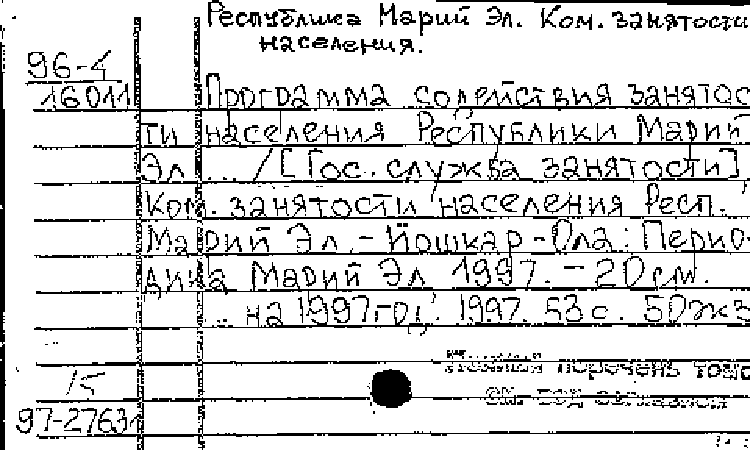 Республика Марий Эл. Ком. занятости
населения.
96-4
16011
Программа содействия занятос
ти населения Республики Марий
Эл ... / [Гос. служба занятости]
Ком. занятости населения Респ.
Марий Эл. - Йошкар-Ола: Перио-
дика Марий Эл 1997. - 20 см.
... на 1997 год. 1997. 53 с. 50 экз
перечень томо
15
97-27631